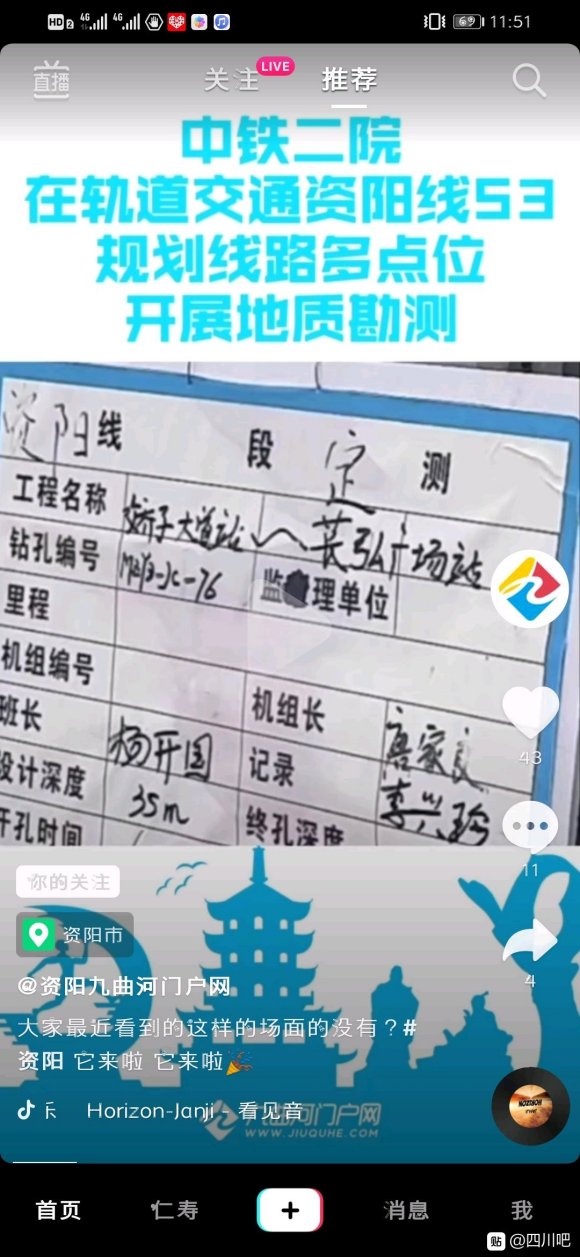 HD 2 4G 4G 69 11:51
直播 关注 LIVE 推荐
中铁二院
在轨道交通资阳线S3
规划线路多点位
开展地质勘测
资阳线 段 定 测
工程名称 娇子大道站~苌弘广场站
钻孔编号 监理单位
里程
机组编号
班长 杨开国 机组长 唐家良
设计深度 35m 记录 李兴珍
开孔时间 终孔深度
43
11
你的关注
资阳市
4
@资阳九曲河门户网
大家最近看到的这样的场面的没有？#
资阳 它来啦 它来啦🎉
Horizon-Janji - 看见音
九曲河门户网
WWW.JIUQUHE.COM
HORIZON
首页 仁寿 + 消息 我
贴 @四川吧